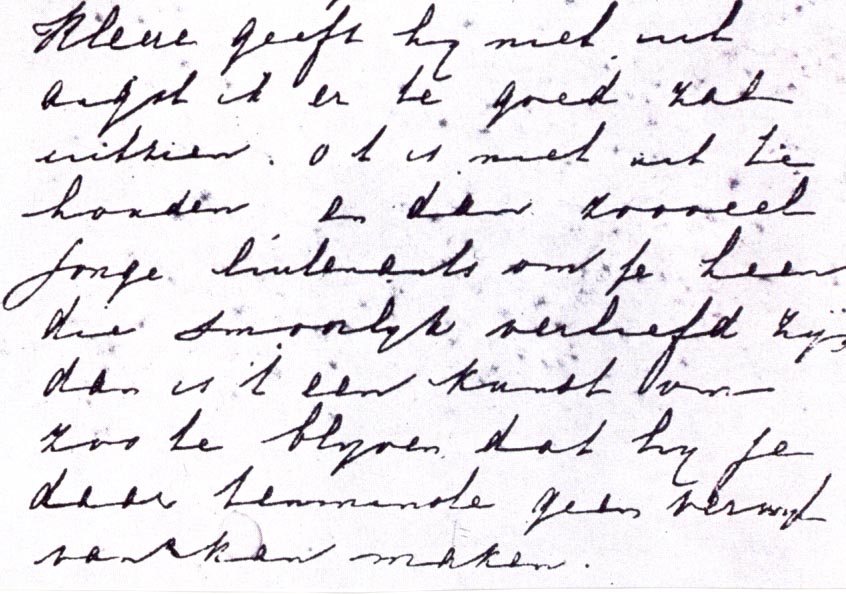 Kleere geeft hy niet uit
angst ik er te goed zal
uitzien. O t is niet uit te
houden en dan zooveel
jonge luitenants om je heen
die smoorlyk verliefd zijn
dan is 't een kunst om
zoo te blyven dat hy je
daar tenminste geen verwyt
van kan maken.